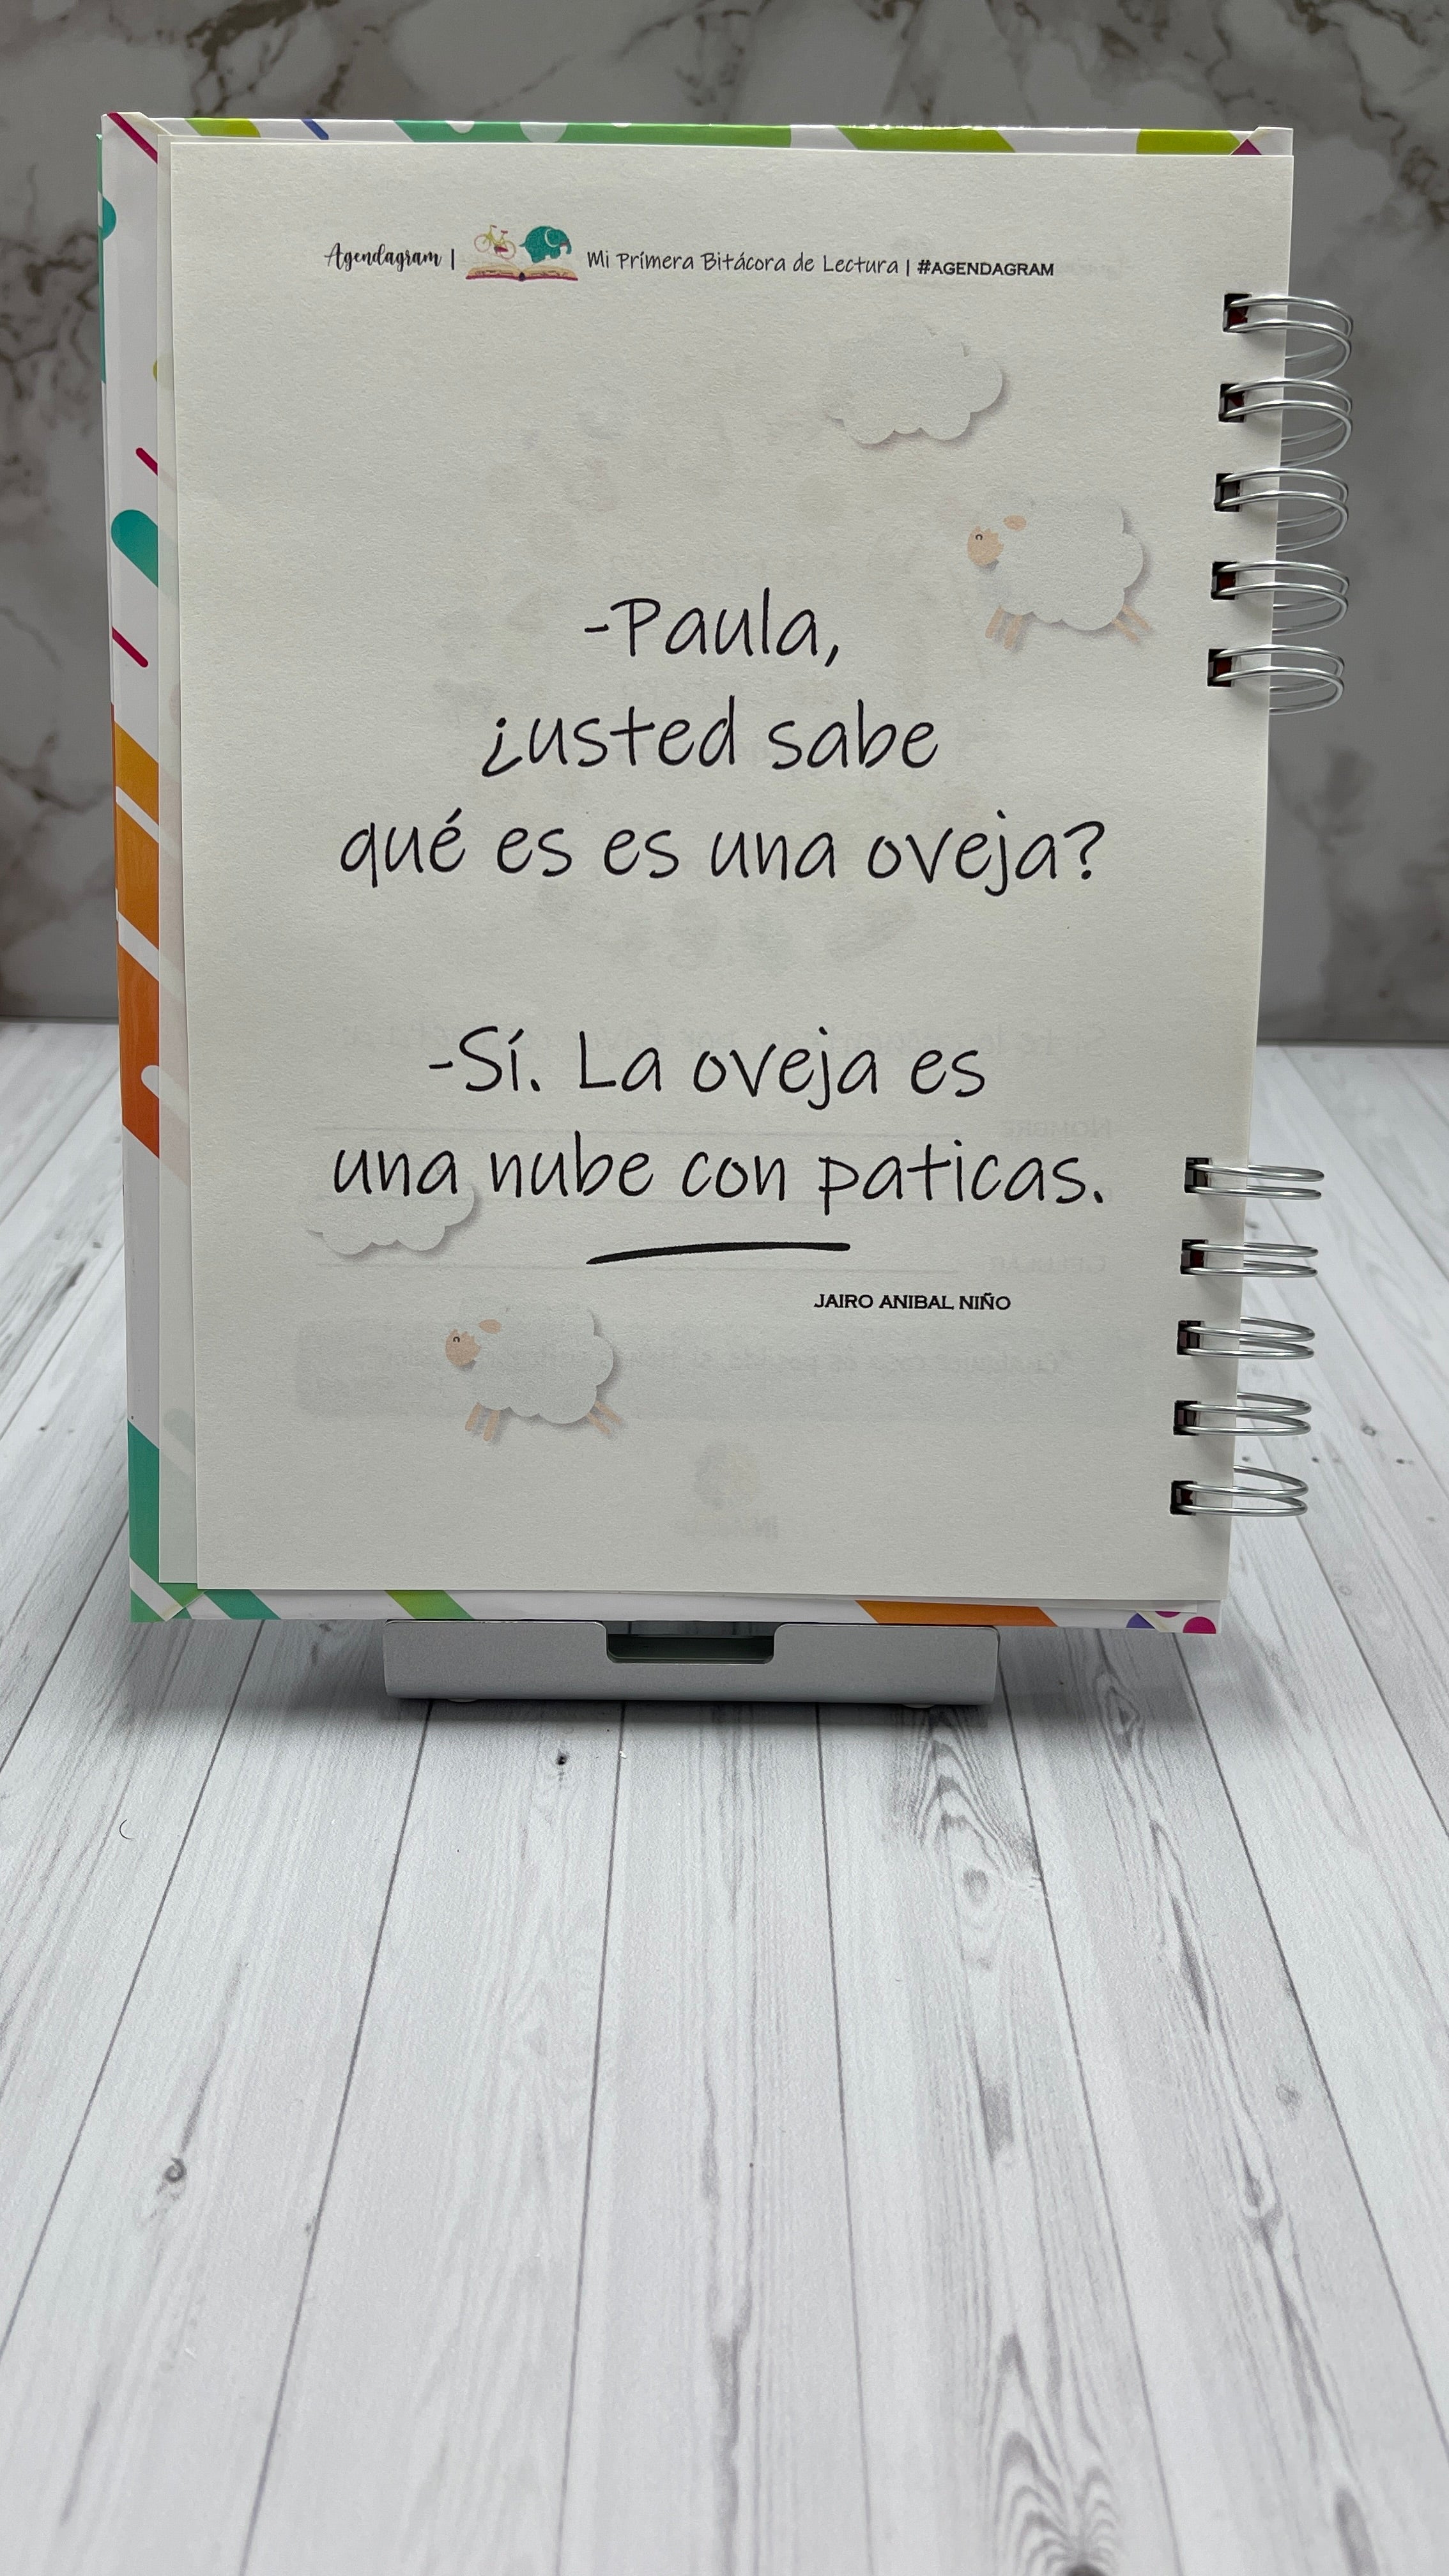 Agendagram | Mi Primera Bitácora de Lectura | #AGENDAGRAM
-Paula,
¿usted sabe
qué es es una oveja?
-Sí. La oveja es
una nube con paticas.
JAIRO ANIBAL NIÑO